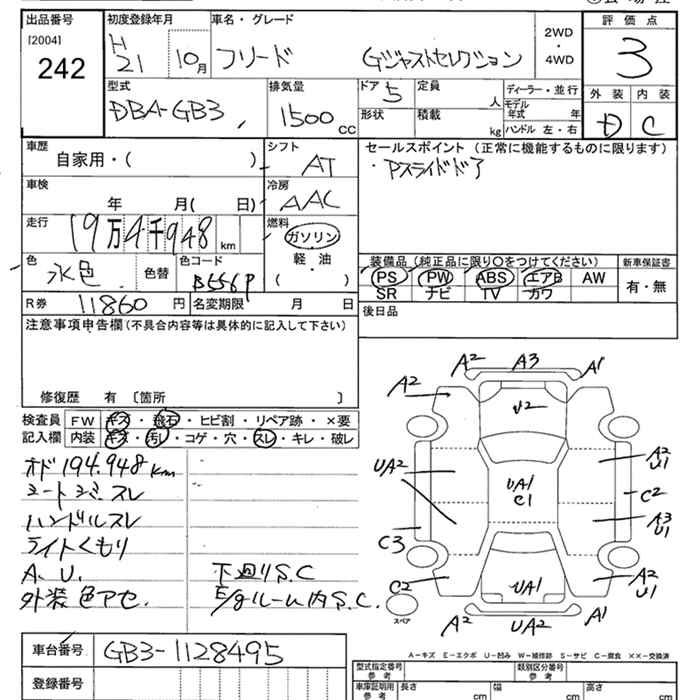 出品番号
[2004]
242
初度登録年月
H
21
10月
車名・グレード
フリード Gジャストセレクション
2WD
・
4WD
評価点
3
外装 内装
D C
型式
DBA-GB3
排気量
1500cc
ドア 5
形状
定員 人
積載 kg
ディーラー・並行
モデル年式 年
ハンドル 左・右
車歴
自家用・( )
シフト
AT
セールスポイント(正常に機能するものに限ります)
・Pスライドドア
車検
年 月( 日)
冷房
AAC
走行
19万4千948km
燃料
ガソリン
軽・油
( )
色
水色
色替
色コード
B556P
装備品(純正品に限り○をつけてください)
PS PW ABS エアB AW
SR ナビ TV カワ
新車保証書
有・無
R券 11860円
名変期限 月 日
後日品
注意事項申告欄(不具合内容等は具体的に記入して下さい)
修復歴 有〔箇所 〕
検査員記入欄
FW キズ・飛石・ヒビ割・リペア跡・×要
内装 キズ・汚レ・コゲ・穴・スレ・キレ・破レ
オド194.948km
シートシミスレ
ハンドルスレ
ライトくもり
A.U.
外装色アセ.
下廻りS.C
E/gルーム内S.C.
A2 A3 A1
A2
U2
UA2
UA1
C1
A2
U1
C2
A3
U1
C3
C2
UA1
A2
U1
A2 UA2 A1
スペア
A-キズ E-エクボ U-凹み W-補修跡 S-サビ C-腐食 ××-交換済
車台番号 GB3-1128495
登録番号
型式指定番号
参考
類別区分番号
参考
車庫証明用
参考
長さ cm
幅 cm
高さ cm